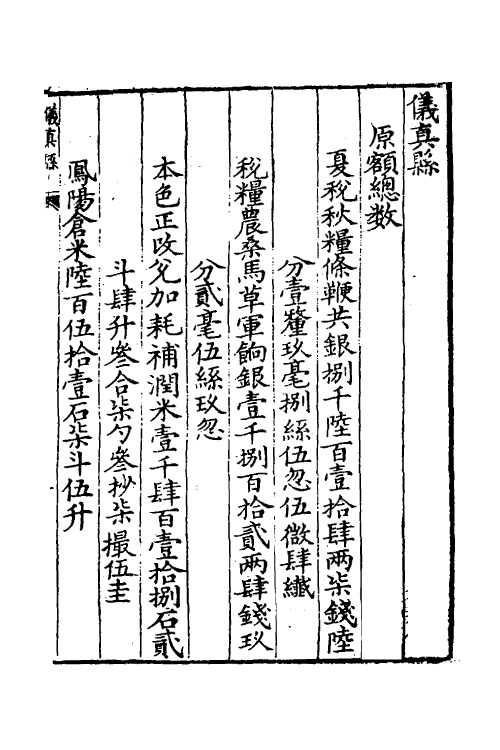 儀真縣
原額總数
夏稅秋糧條鞭共銀捌千陸百壹拾肆兩柒錢陸
分壹釐玖毫捌絲伍忽伍微肆纖
稅糧農桑馬草軍餉銀壹千捌百拾貳兩肆錢玖
分貳毫伍絲玖忽
本色正攺兊加耗補潤米壹千肆百壹拾捌石貳
斗肆升叄合柒勺叄抄柒撮伍圭
鳳陽倉米陸百伍拾壹石柒斗伍升
儀真縣